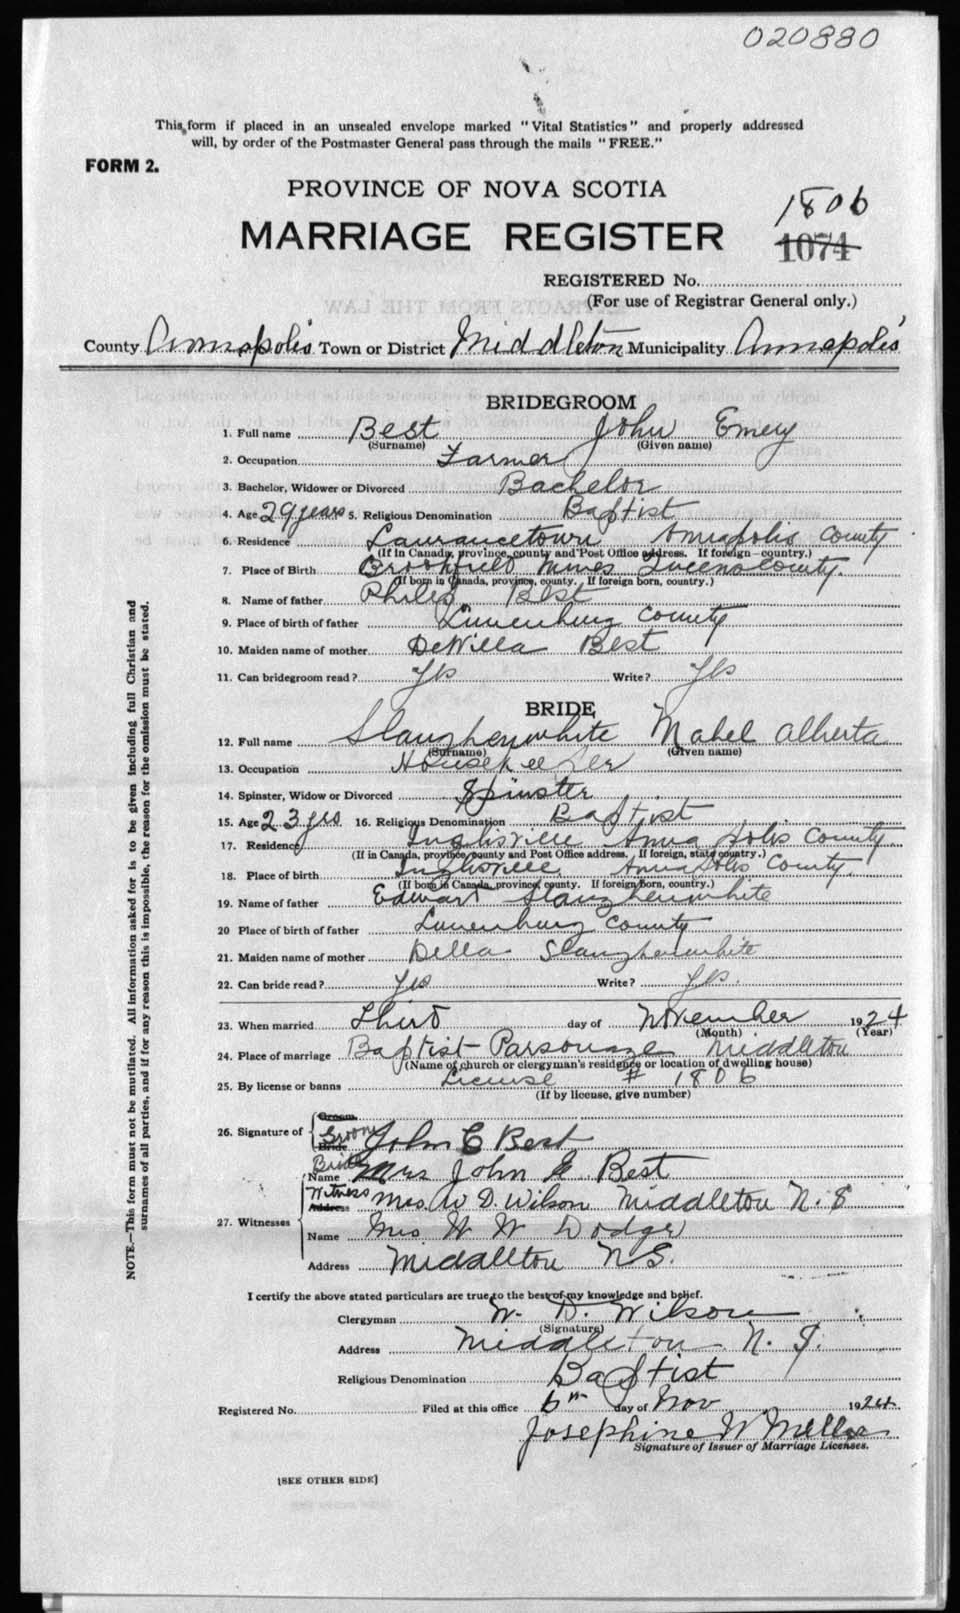 020880
This form if placed in an unsealed envelope marked "Vital Statistics" and properly addressed
will, by order of the Postmaster General pass through the mails "FREE."
FORM 2.
PROVINCE OF NOVA SCOTIA
1806
MARRIAGE REGISTER
1074
REGISTERED No.
(For use of Registrar General only.)
County Annapolis Town or District Middleton Municipality Annapolis
BRIDEGROOM
1. Full name Best John Emery
(Surname) (Given name)
2. Occupation Farmer
3. Bachelor, Widower or Divorced Bachelor
4. Age 29 years 5. Religious Denomination Baptist
6. Residence Laurancetown Annapolis County
(If in Canada, province, county and Post Office address. If foreign—country.)
7. Place of Birth Brookfield Mines Queens County.
(If born in Canada, province, county. If foreign born, country.)
8. Name of father Best
9. Place of birth of father Lunenburg County
10. Maiden name of mother DeWilla Best
11. Can bridegroom read? Yes Write? Yes
BRIDE
12. Full name Slaughenwhite Mabel Alberta
(Surname) (Given name)
13. Occupation Housekeeper
14. Spinster, Widow or Divorced Spinster
15. Age 23 yrs 16. Religious Denomination Baptist
17. Residence Inglisville Annapolis County.
(If in Canada, province, county and Post Office address. If foreign, state country.)
18. Place of birth Inglisville Annapolis County.
(If born in Canada, province, county. If foreign born, country.)
19. Name of father Edward Slaughenwhite
20 Place of birth of father Lunenburg County
21. Maiden name of mother Della Slaughenwhite
22. Can bride read? Yes Write? Yes.
23. When married Third day of November 1924
(Month) (Year)
24. Place of marriage Baptist Parsonage Middleton
(Name of church or clergyman's residence or location of dwelling house)
25. By license or banns License # 1806
(If by license, give number)
26. Signature of Groom
Groom Bride John E Best
Bride Name Mrs John E Best
Witness Address Mrs. W D. Wilson Middleton N. S
27. Witnesses
Name Mrs W W Dodge
Address Middleton N S.
I certify the above stated particulars are true to the best of my knowledge and belief.
Clergyman W. D. Wilson
(Signature)
Address Middleton N. S.
Religious Denomination Baptist
Registered No. Filed at this office 6th day of Nov 1924.
Josephine W. Miller
Signature of Issuer of Marriage Licenses.
[SEE OTHER SIDE]
NOTE.—This form must not be mutilated. All information asked for is to be given including full Christian and
surnames of all parties, and if for any reason this is impossible, the reason for the omission must be stated.